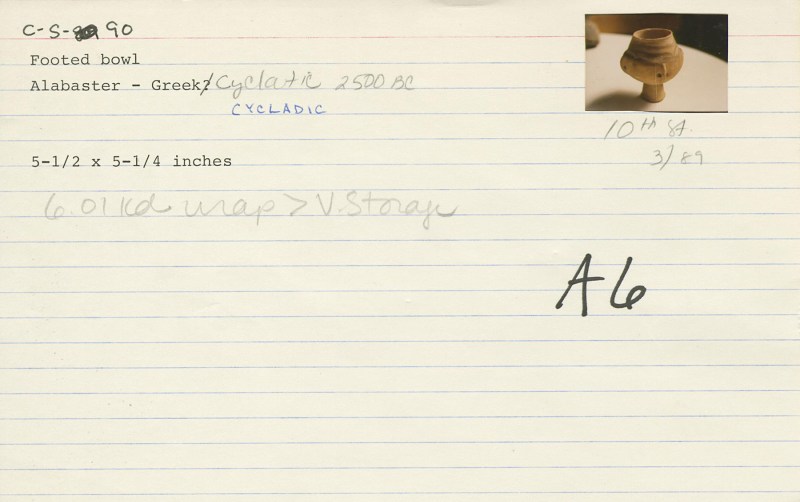 C-S-90
Footed bowl
Alabaster - Greek?/Cyclatic 2500 BC
CYCLADIC
10th St.
3/89
5-1/2 x 5-1/4 inches
6.01 Kd wrap > V.Storage
A6